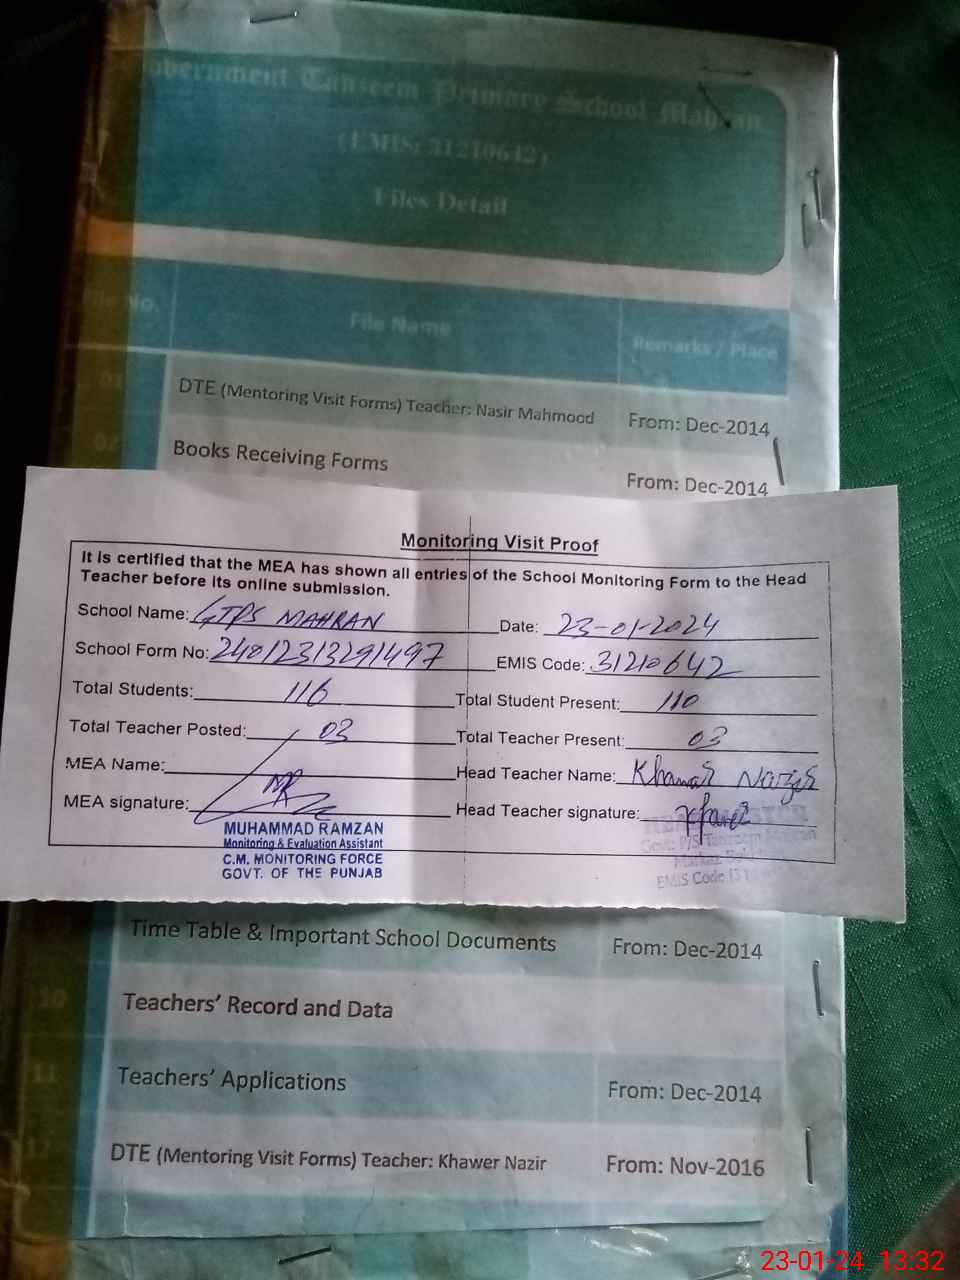 Government Tanseem Primary School Mahran
(EMIS: 31210642)
Files Detail
File No. File Name Remarks / Place
01 DTE (Mentoring Visit Forms) Teacher: Nasir Mahmood From: Dec-2014
02 Books Receiving Forms From: Dec-2014
Monitoring Visit Proof
It is certified that the MEA has shown all entries of the School Monitoring Form to the Head
Teacher before its online submission.
School Name: GTPS MAHRAN Date: 23-01-2024
School Form No: 24012313291497 EMIS Code: 31210642
Total Students: 116 Total Student Present: 110
Total Teacher Posted: 03 Total Teacher Present: 03
MEA Name: Head Teacher Name: Khawar Nazir
MEA signature: Head Teacher signature:
MUHAMMAD RAMZAN
Monitoring & Evaluation Assistant
C.M. MONITORING FORCE
GOVT. OF THE PUNJAB
Govt: P/S Tanseem Mahran
Markaz
EMIS Code
Time Table & Important School Documents From: Dec-2014
10 Teachers’ Record and Data
11 Teachers’ Applications From: Dec-2014
12 DTE (Mentoring Visit Forms) Teacher: Khawer Nazir From: Nov-2016
23-01-24 13:32